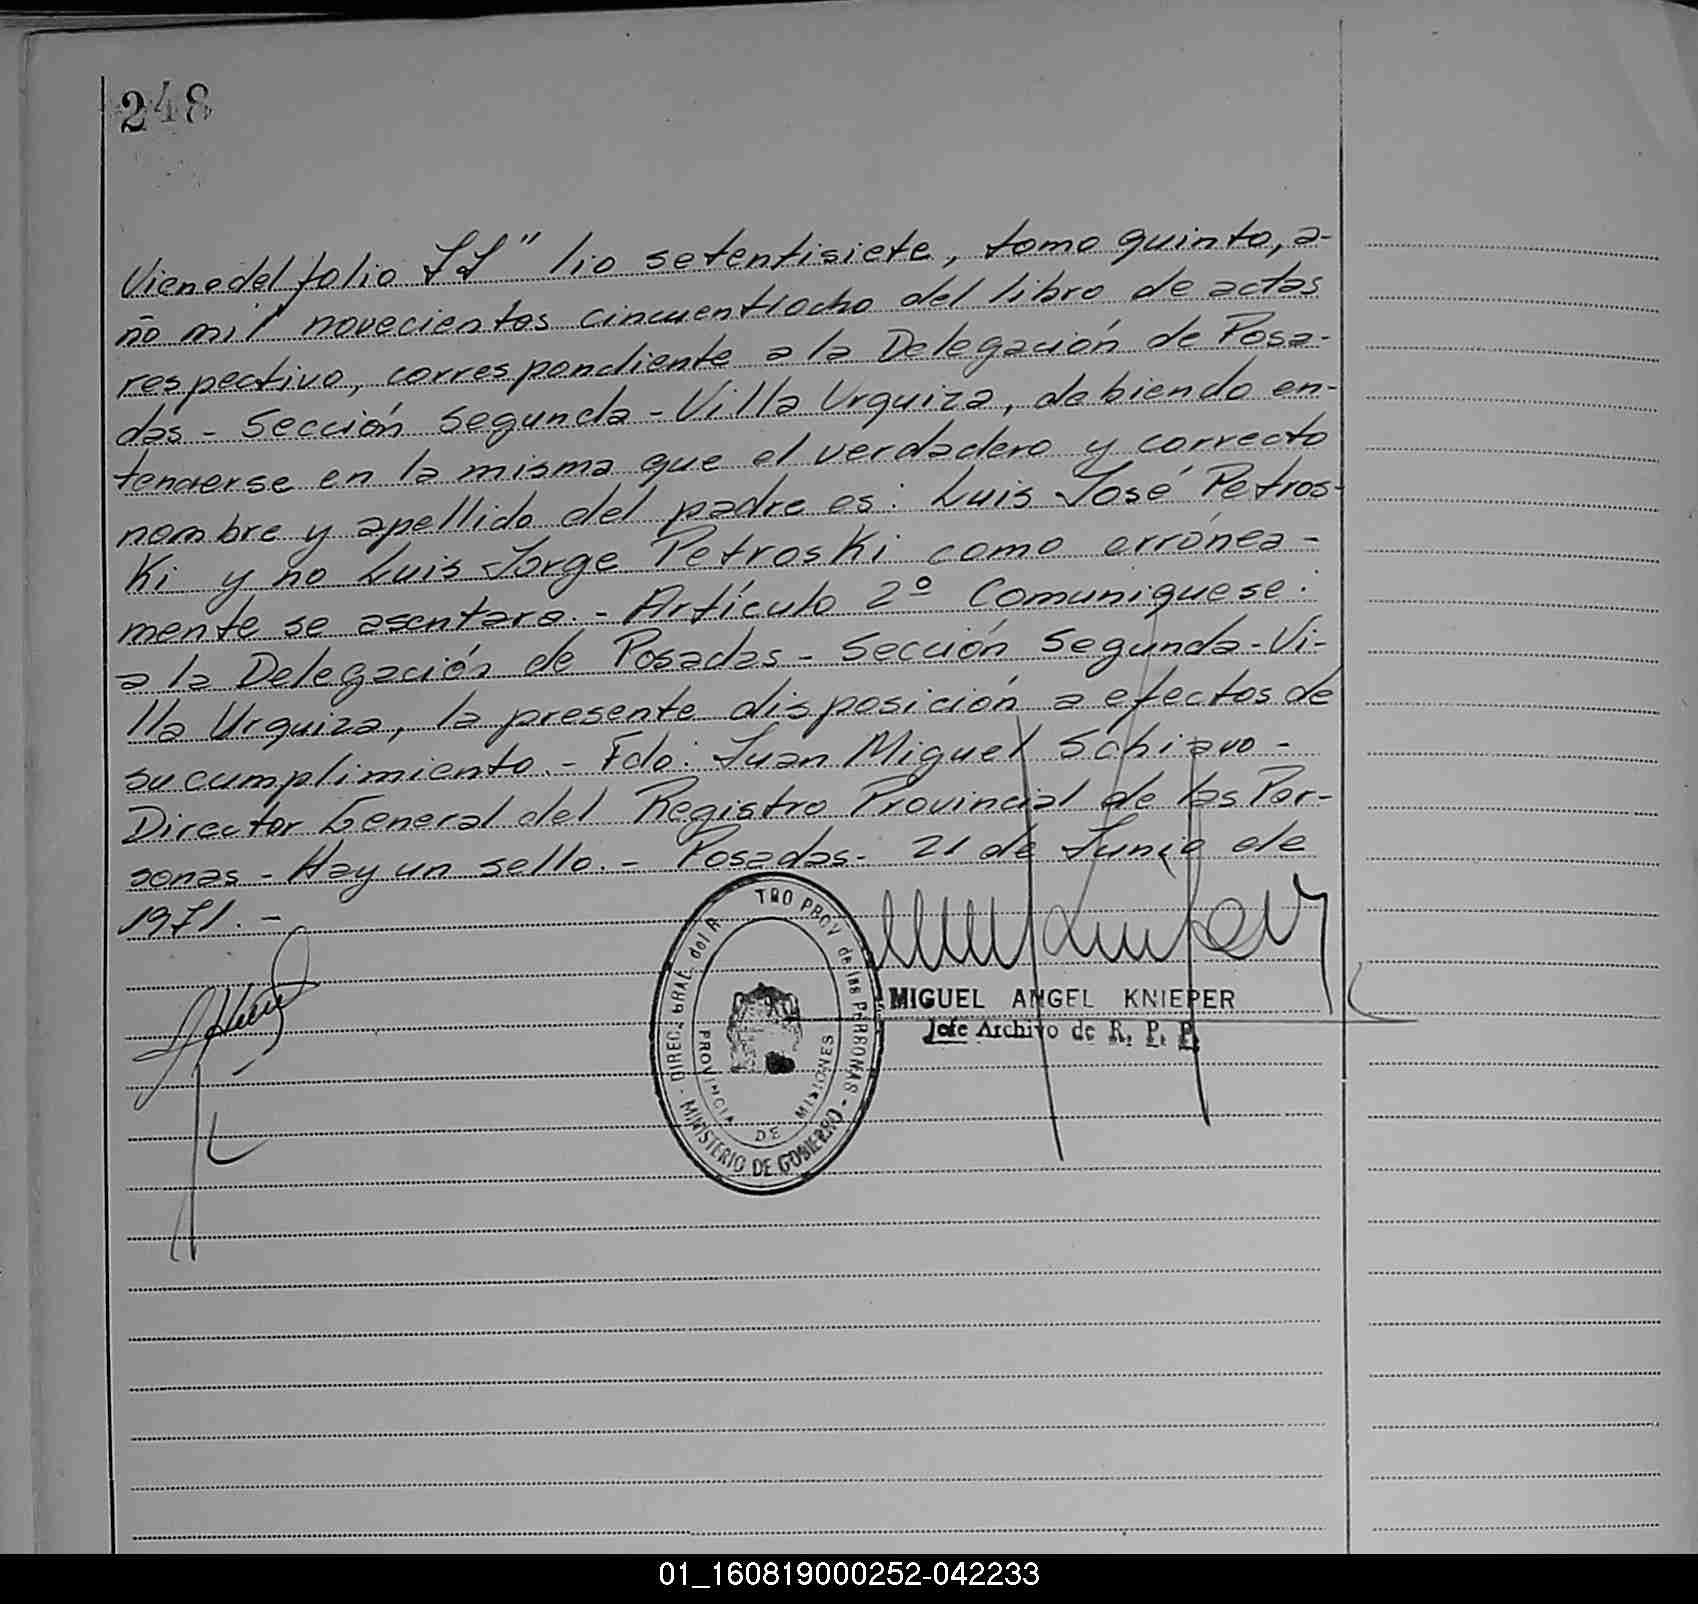 248
Viene del folio 77" lio setentisiete, tomo quinto, a-
ño mil novecientos cincuentiocho del libro de actas
respectivo, correspondiente a la Delegación de Posa-
das - Sección Segunda - Villa Urquiza, debiendo en-
tenderse en la misma que el verdadero y correcto
nombre y apellido del padre es: Luis José Petros-
Ki y no Luis Jorge Petroski como errónea-
mente se asentara. - Artículo 2º Comuniquese:
a la Delegación de Posadas - Sección Segunda - Vi-
lla Urquiza, la presente disposición a efectos de
su cumplimiento. - Fdo: Juan Miguel Schiavo -
Director General del Registro Provincial de las Per-
sonas - Hay un sello. - Posadas - 21 de Junio de
1971. -
DIREC. GRAL. del R TRO PROV de las PERSONAS - MINISTERIO DE GOBIERNO -
PROVINCIA DE MISIONES
MIGUEL ANGEL KNIEPER
Jefe Archivo de R. P. P.
01_160819000252-042233